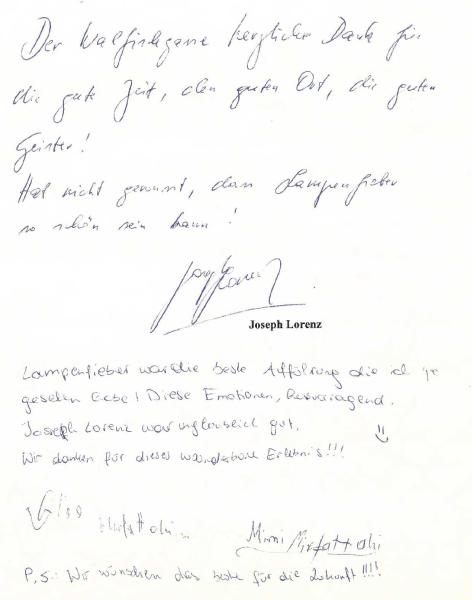 Der Walfischgasse herzlichen Dank für
die gute Zeit, den guten Ort, die guten
Geister!
Hat nicht gewusst, dass Lampenfieber
so schön sein kann!
Joseph Lorenz
Joseph Lorenz
Lampenfieber war die beste Aufführung die ich je
gesehen habe! Diese Emotionen,
Joseph Lorenz war unglaublich gut.
Wir danken für dieses wunderbare Erlebnis!!!
Mimi Mirfattahi
P.S.: Wir wünschen das beste für die Zukunft!!!!